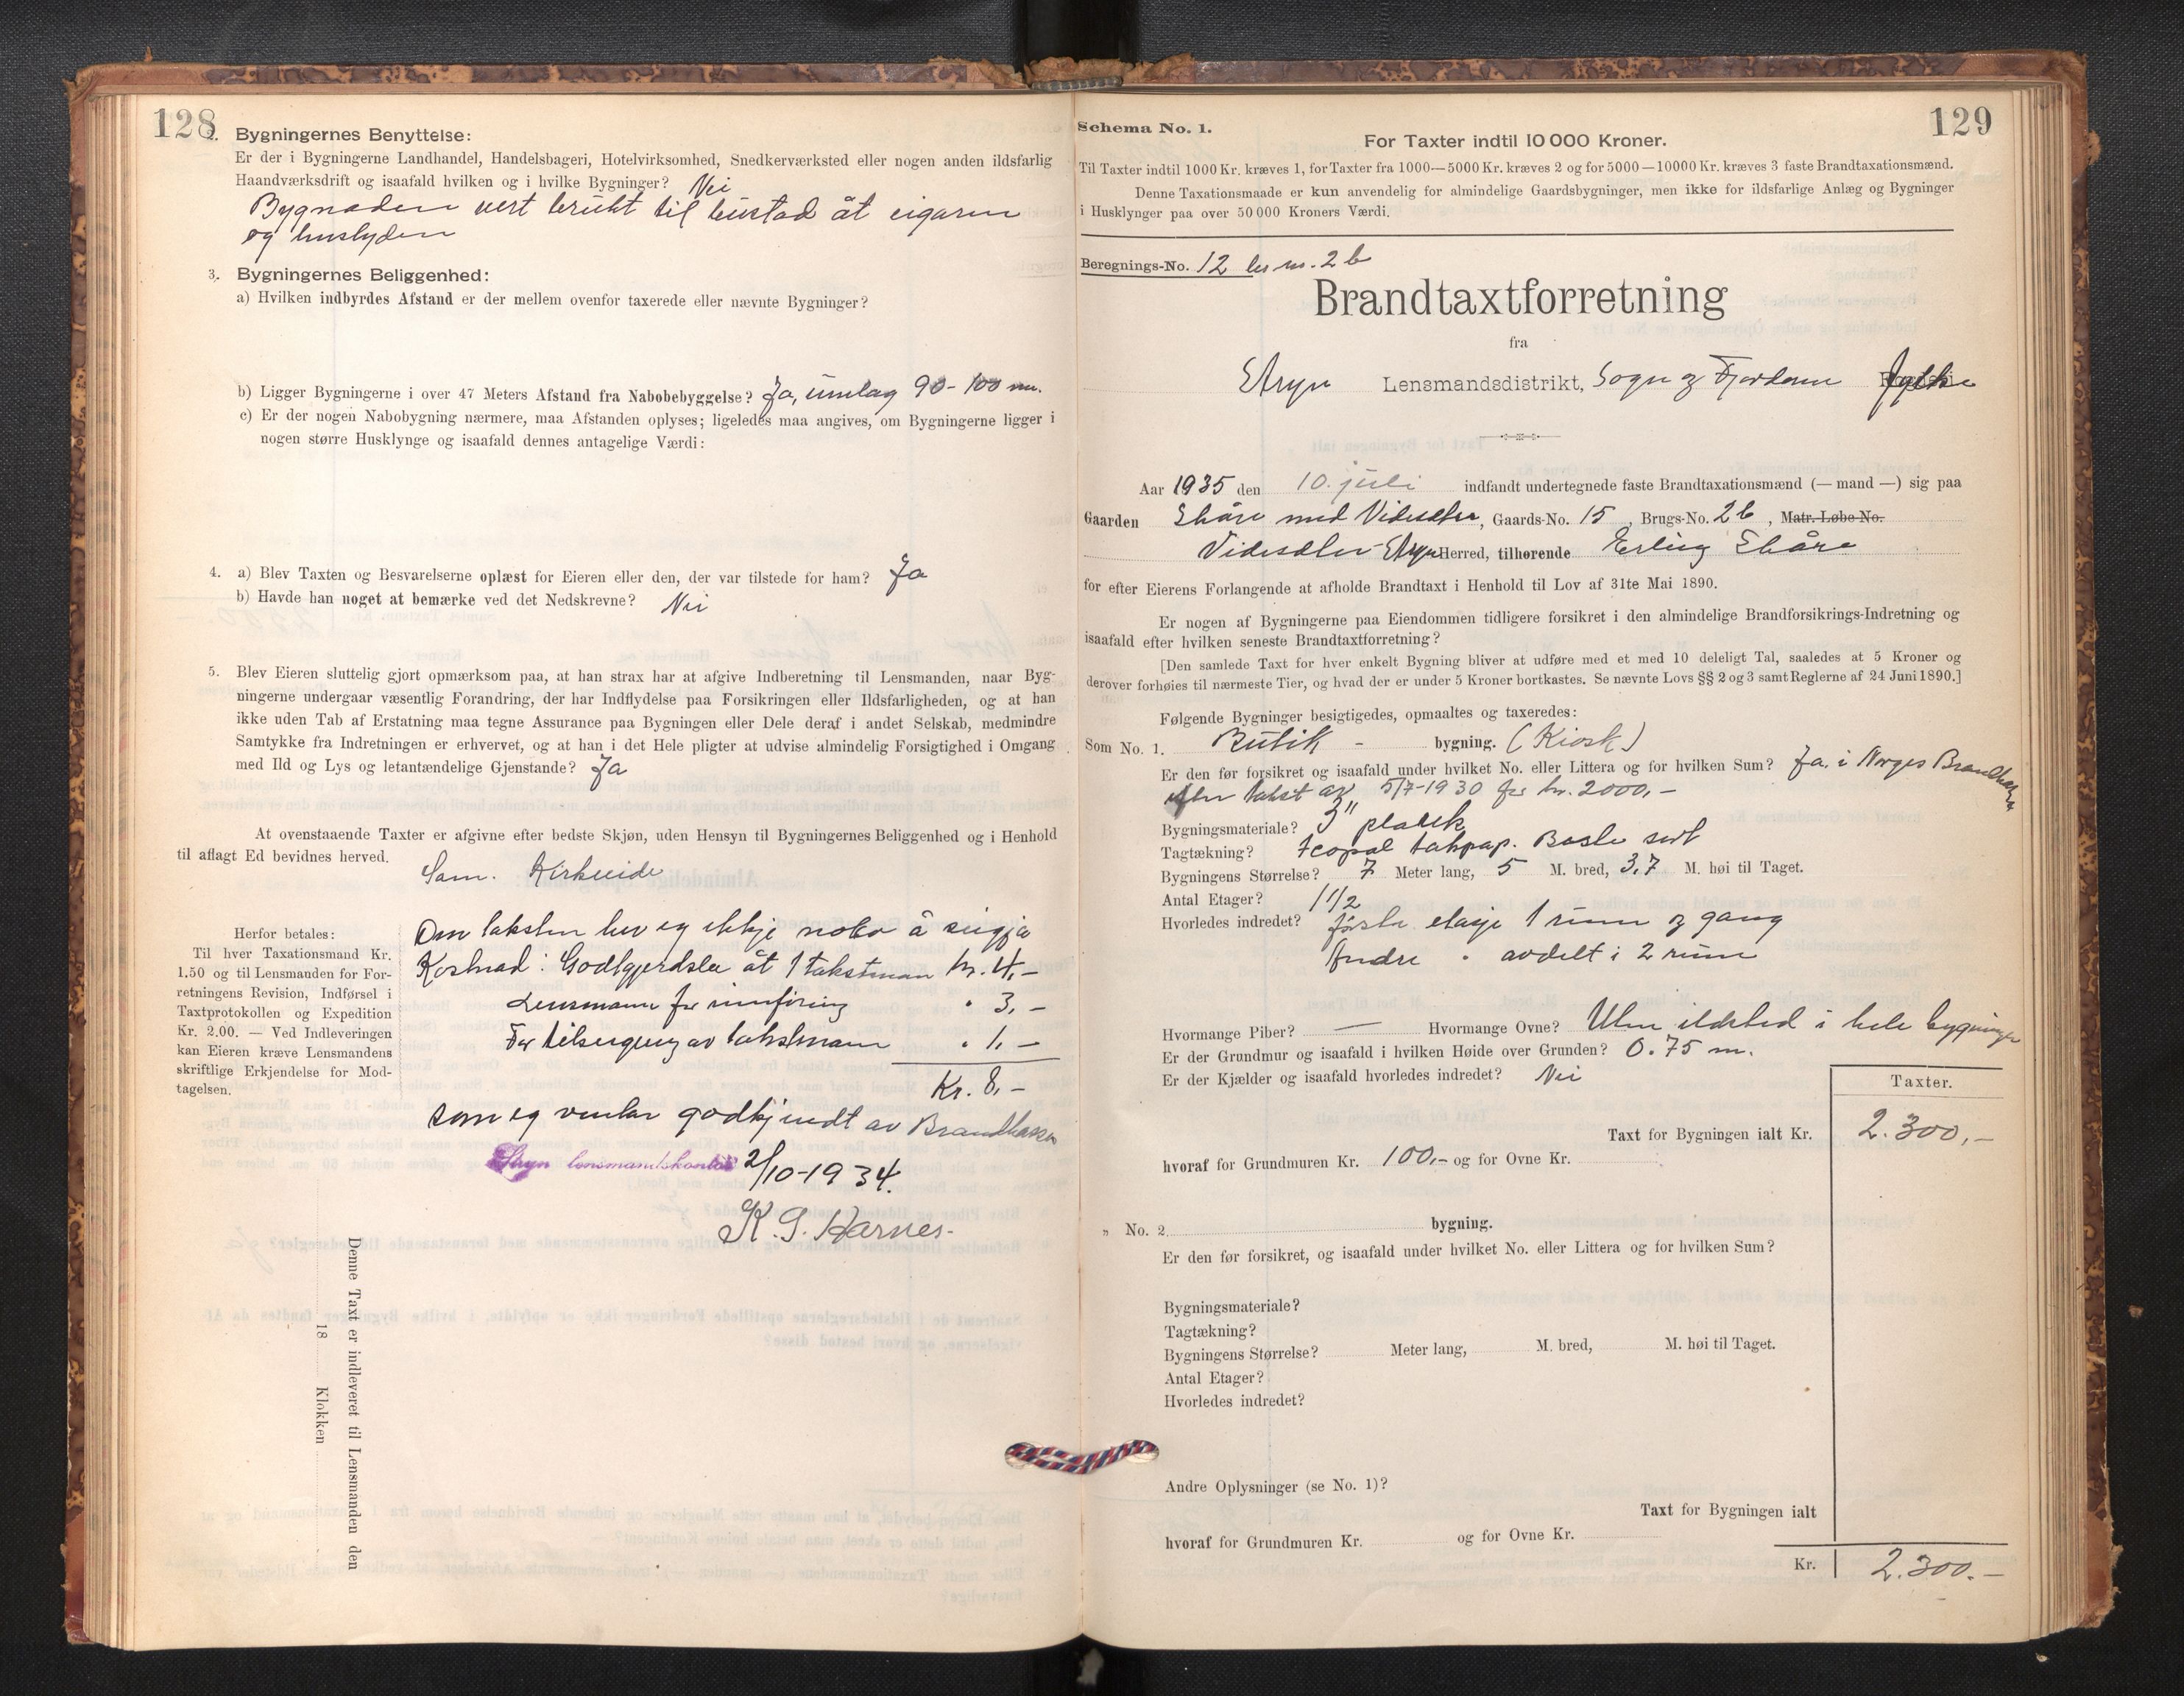 128
2. Bygningernes Benyttelse:
Er der i Bygningerne Landhandel, Handelsbageri, Hotelvirksomhed, Snedkerværksted eller nogen anden ildsfarlig
Haandværksdrift og isaafald hvilken og i hvilke Bygninger? Nei
Bygnaden vert brukt til bustad åt eigaren
og huslyden
3. Bygningernes Beliggenhed:
a) Hvilken indbyrdes Afstand er der mellem ovenfor taxerede eller nævnte Bygninger?
b) Ligger Bygningerne i over 47 Meters Afstand fra Nabobebyggelse? Ja, umlag 90-100 m.
c) Er der nogen Nabobygning nærmere, maa Afstanden oplyses; ligeledes maa angives, om Bygningerne ligger i
nogen større Husklynge og isaafald dennes antagelige Værdi:
4. a) Blev Taxten og Besvarelserne oplæst for Eieren eller den, der var tilstede for ham? Ja
b) Havde han noget at bemærke ved det Nedskrevne? Nei
5. Blev Eieren sluttelig gjort opmærksom paa, at han strax har at afgive Indberetning til Lensmanden, naar Byg-
ningerne undergaar væsentlig Forandring, der har Indflydelse paa Forsikringen eller Ildsfarligheden, og at han
ikke uden Tab af Erstatning maa tegne Assurance paa Bygningen eller Dele deraf i andet Selskab, medmindre
Samtykke fra Indretningen er erhvervet, og at han i det Hele pligter at udvise almindelig Forsigtighed i Omgang
med Ild og Lys og letantændelige Gjenstande? Ja
At ovenstaaende Taxter er afgivne efter bedste Skjøn, uden Hensyn til Bygningernes Beliggenhed og i Henhold
til aflagt Ed bevidnes herved.
Sam. Kirkeeide
Herfor betales:
Til hver Taxationsmand Kr.
1.50 og til Lensmanden for For-
retningens Revision, Indførsel i
Taxtprotokollen og Expedition
Kr. 2.00. — Ved Indleveringen
kan Eieren kræve Lensmandens
skriftlige Erkjendelse for Mod-
tagelsen.
Om taksten hev eg ikkje noko å seigja
Kostnad: Godtgjerdsla åt 1 takstmann kr. 4,-
Lensmann for innføring " 3,-
For tilseigjing av takstmann " 1,-
Kr. 8,-
som eg ventar godkjendt av Brandkassa
Stryn lensmandskontor 2/10-1934.
K. S. Harnes.
Denne Taxt er indleveret til Lensmanden den
18 Klokken
129
Schema No. 1.
For Taxter indtil 10 000 Kroner.
Til Taxter indtil 1000 Kr. kræves 1, for Taxter fra 1000—5000 Kr. kræves 2 og for 5000—10000 Kr. kræves 3 faste Brandtaxationsmænd.
Denne Taxationsmaade er kun anvendelig for almindelige Gaardsbygninger, men ikke for ildsfarlige Anlæg og Bygninger
i Husklynger paa over 50 000 Kroners Værdi.
Beregnings-No. 12 br. nr. 2 b
Brandtaxtforretning
fra
Stryn Lensmandsdistrikt, Sogn og Fjordane fylke
Aar 1935 den 10. juli indfandt undertegnede faste Brandtaxationsmænd (— mand —) sig paa
Gaarden Skåre med Videseter, Gaards-No. 15, Brugs-No. 2 b, Matr.-Løbe-No.
Videseter Stryn Herred, tilhørende Erling Skåre
for efter Eierens Forlangende at afholde Brandtaxt i Henhold til Lov af 31te Mai 1890.
Er nogen af Bygningerne paa Eiendommen tidligere forsikret i den almindelige Brandforsikrings-Indretning og
isaafald efter hvilken seneste Brandtaxtforretning?
[Den samlede Taxt for hver enkelt Bygning bliver at udføre med et med 10 deleligt Tal, saaledes at 5 Kroner og
derover forhøies til nærmeste Tier, og hvad der er under 5 Kroner bortkastes. Se nævnte Lovs §§ 2 og 3 samt Reglerne af 24 Juni 1890.]
Følgende Bygninger besigtigedes, opmaaltes og taxeredes:
Som No. 1. Butik - bygning. (Kiosk)
Er den før forsikret og isaafald under hvilket No. eller Littera og for hvilken Sum? Ja, i Norges Brandkasse
etter takst av 5/7-1930 for kr. 2000,-
Bygningsmateriale? 3" plank
Tagtækning? Icopal takpap. Basle sort
Bygningens Størrelse? 7 Meter lang, 5 M. bred, 3,7 M. høi til Taget.
Antal Etager? 1 1/2
Hvorledes indredet? første etasje 1 rum og gang
Andre " avdelt i 2 rum
Hvormange Piber? — Hvormange Ovne? Uten ildsted i hele bygningen
Er der Grundmur og isaafald i hvilken Høide over Grunden? 0.75 m.
Er der Kjælder og isaafald hvorledes indredet? Nei
Taxter.
Taxt for Bygningen ialt Kr. 2.300,-
hvoraf for Grundmuren Kr. 100,- og for Ovne Kr.
" No. 2. bygning.
Er den før forsikret, og isaafald under hvilket No. eller Littera og for hvilken Sum?
Bygningsmateriale?
Tagtækning?
Bygningens Størrelse? Meter lang, M. bred, M. høi til Taget.
Antal Etager?
Hvorledes indredet?
Andre Oplysninger (se No. 1)?
Taxt for Bygningen ialt
hvoraf for Grundmuren Kr. og for Ovne Kr.
Kr. 2.300.-